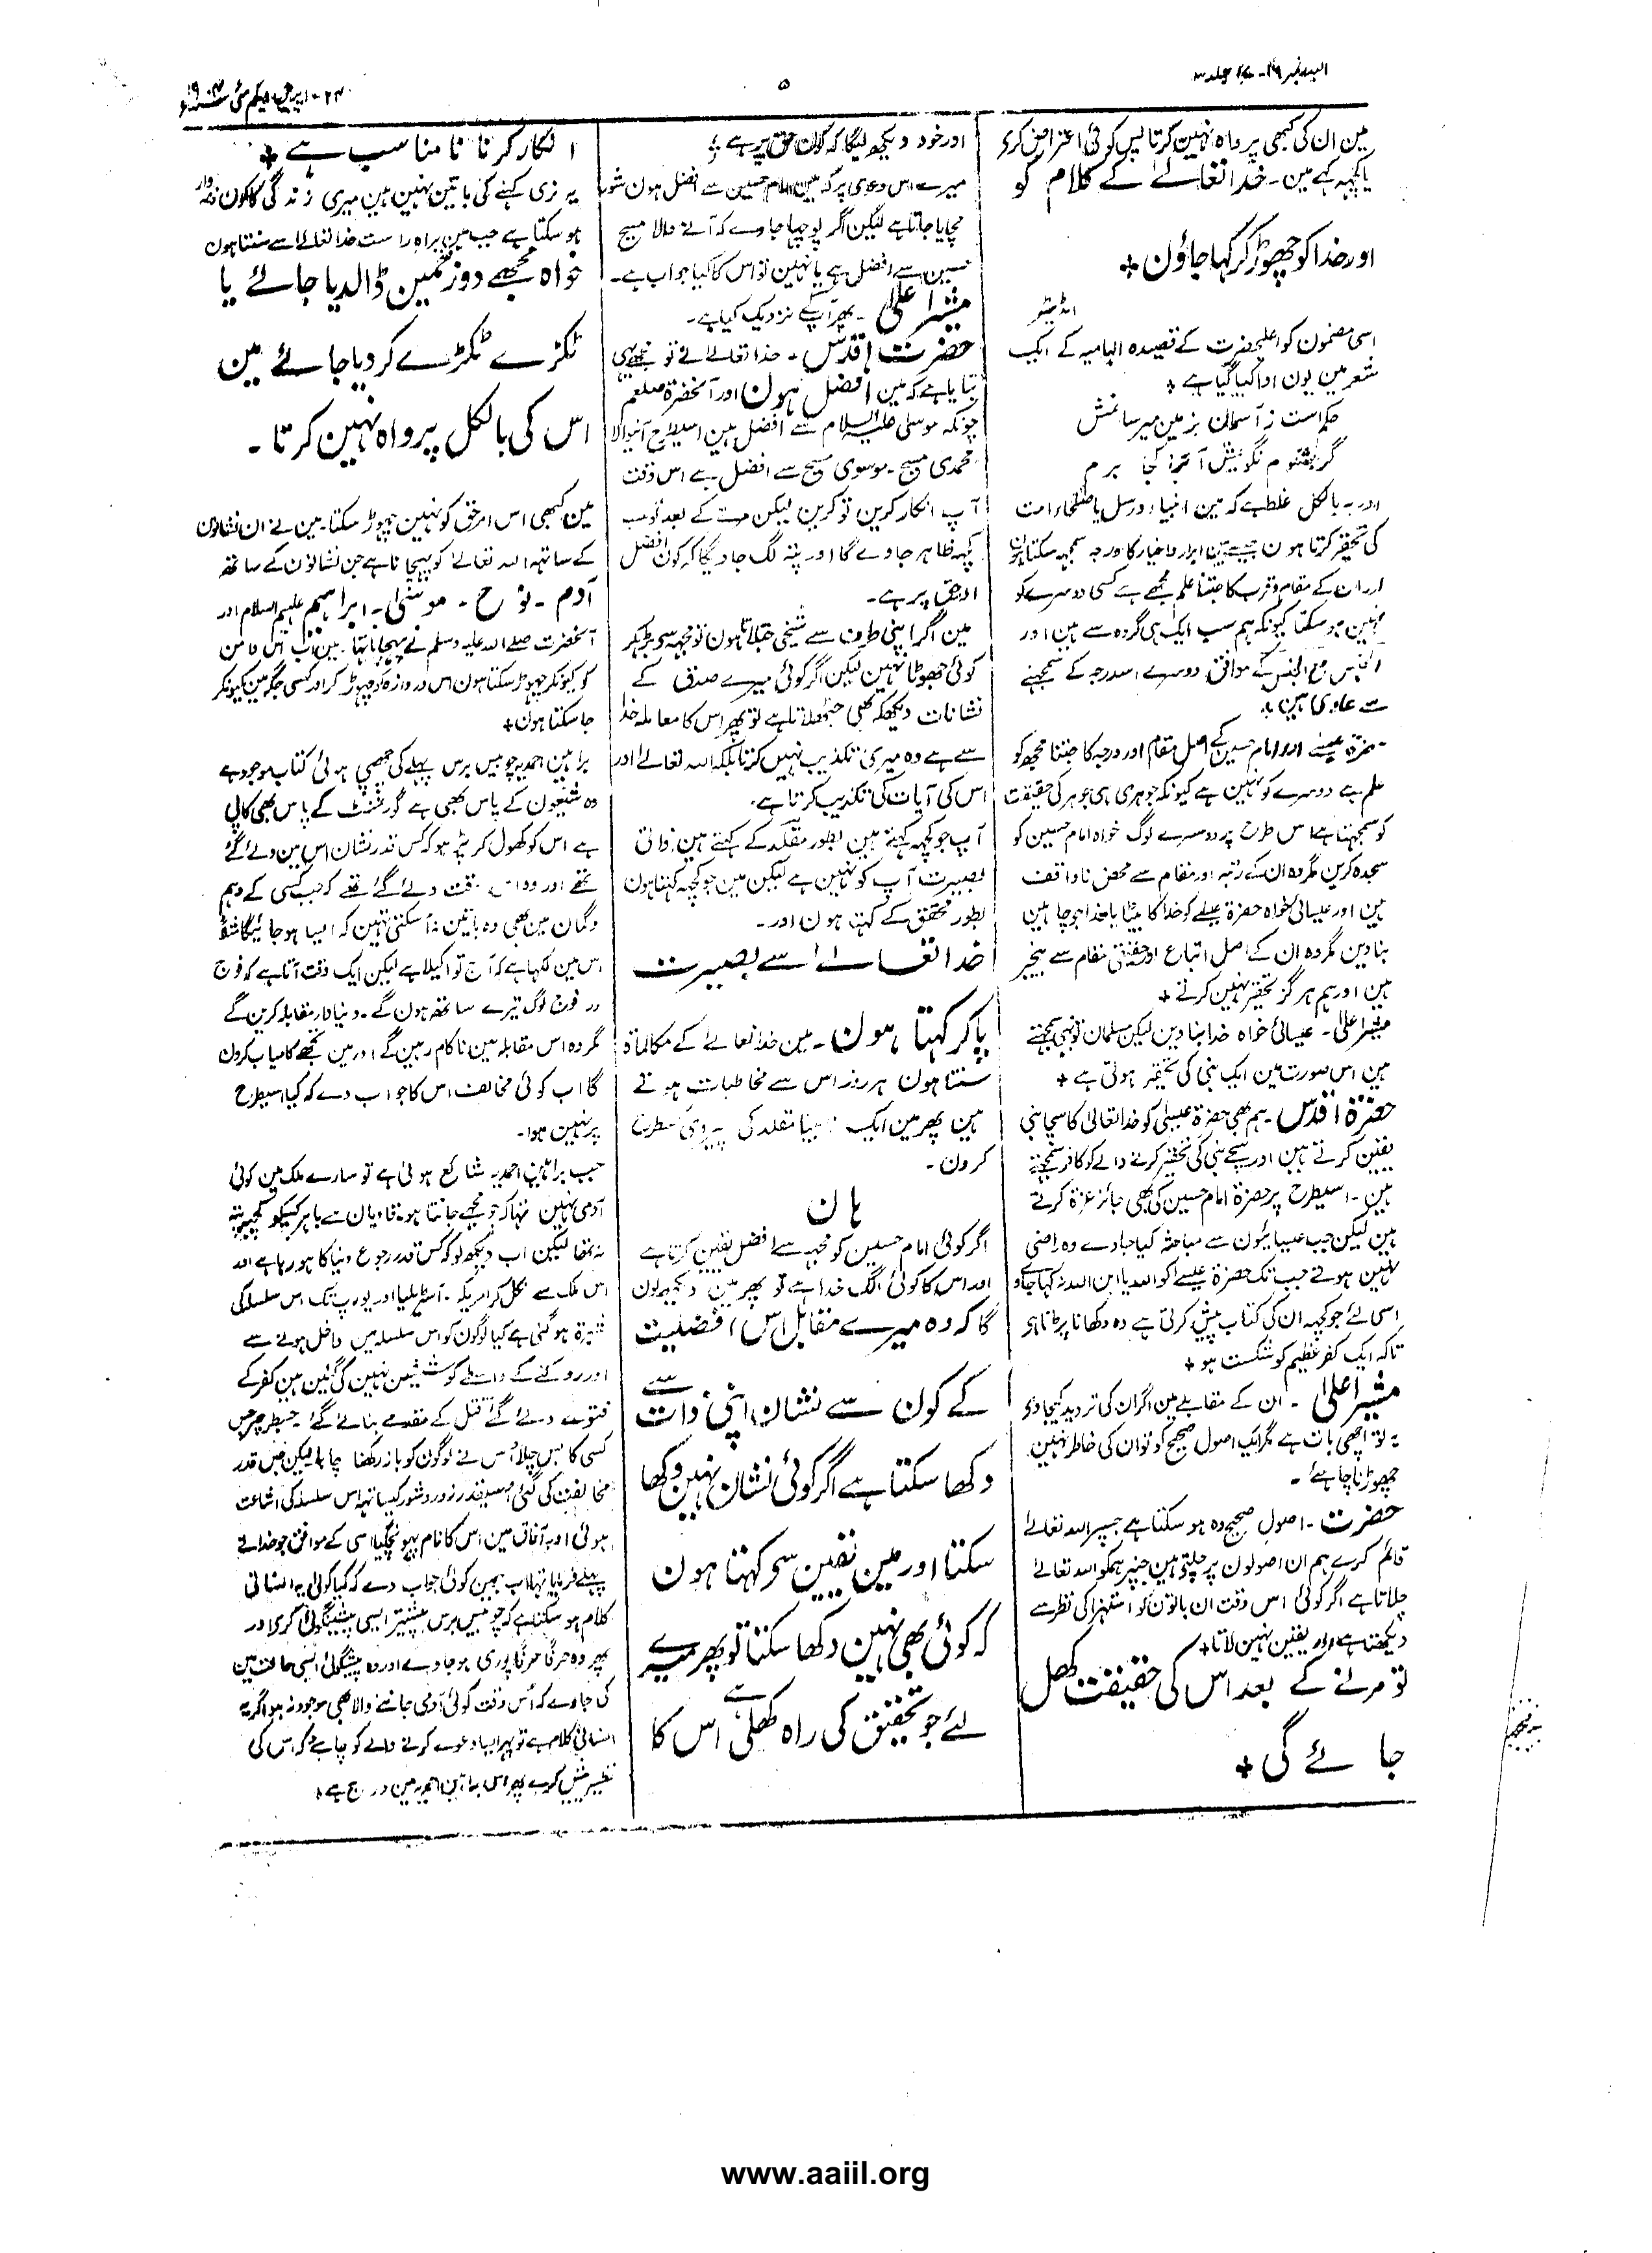 البدر نمبر ۱۶-۱۷ جلد ۳
۵
۲۴- اپریل ویکم مئی ۱۹۰۴ء
مین ان کی کبھی پرواہ نہین کرتا پس کوئی اعتراض کری
یا کچہہ کہے مین - خدا تعالےٰ کے کلام کو
اور خدا کو چھوڑ کر کہا جاؤن +
اڈیٹر
اسی مضمون کو اعلیحضرت کے قصیدہ الہامیہ کے ایک
شعر مین یون ادا کیا گیا ہے +
حکم است ز آسمان بزمین میرسانمش
گر بشنوم نگویمش آنرا کجا برم
اور یہ بالکل غلط ہے کہ مین انبیاء و رسل یا صلحاء امت
کی تحقیر کرتا ہون جیسے مین ابرار و اخیار کا درجہ سمجہہ سکتا ہون
اور ان کے مقام و قرب کا جتنا علم مجھے ہے کسی دوسرے کو
نہین ہو سکتا کیونکہ ہم سب ایک ہی گروہ سے ہین اور
الجنس مع الجنس کے موافق دوسرے اسدرجہ کے سمجہنے
سے عاری ہین +
حضرۃ عیسےٰ اور امام حسین کے اصل مقام اور درجہ کا جتنا مجھ کو
علم ہے دوسرے کو نہین ہے کیونکہ جوہری ہی جوہر کی حقیقت
کو سمجہتا ہے اس طرح پر دوسرے لوگ خواہ امام حسین کو
سجدہ کرین مگر وہ ان کے رتبہ اور مقام سے محض ناواقف
ہین اور عیسائی خواہ حضرۃ عیسےٰ کو خدا کا بیٹا یا خدا جو چاہین
بنا دین مگر وہ ان کے اصل اتباع اور حقیقی مقام سے بیخبر
ہین اور ہم ہرگز تحقیر نہین کرتے +
مشیر اعلیٰ - عیسائی خواہ خدا بنا دین لیکن مسلمان تو نبی سمجہتے
ہین اس صورت مین ایک نبی کی تحقیر ہوتی ہے +
حضرۃ اقدس - ہم بھی حضرۃ عیسیٰ کو خدا تعالیٰ کا سچا نبی
یقین کرتے ہین اور سچے نبی کی تحقیر کرنے والے کو کافر سمجہتے
ہین - اسیطرح پر حضرۃ امام حسین کی بھی جائز عزۃ کرتے
ہین لیکن جب عیسائیون سے مباحثہ کیا جاوے وہ راضی
نہین ہوتے جب تک حضرۃ عیسےٰ کو اللہ یا ابن اللہ نہ کہا جاوے
اسی لئے جو کچہہ ان کی کتاب پیش کرتی ہے وہ دکھانا پڑتا ہے
تاکہ ایک کفر عظیم کو شکست ہو +
مشیر اعلیٰ - ان کے مقابلے مین اگر ان کی تردید کیجاوے
یہ تو اچھی بات ہے مگر ایک اصول صحیح کو تو ان کی خاطر نہین
چھوڑنا چاہئے -
حضرت - اصول صحیح وہ ہو سکتا ہے جسپر اللہ تعالےٰ
قائم کرے ہم ان اصولون پر چلتے ہین جنپر ہمکو اللہ تعالےٰ
چلاتا ہے اگر کوئی اس وقت ان باتون کو استہزا کی نظر سے
دیکھتا ہے اور یقین نہین لاتا +
تو مرنے کے بعد اس کی حقیقت کھل
جائے گی +
اور خود دیکھ لیگا کہ کون حق پر ہے ؛
میرے اس دعوی پر کہ مین امام حسین سے افضل ہون شور
مچایا جاتا ہے لیکن اگر پوچہا جاوے کہ آنے والا مسیح
حسین سے افضل ہے یا نہین تو اس کا کیا جواب ہے -
مشیر اعلیٰ - پھر آپکے نزدیک کیا ہے -
حضرت اقدس - خدا تعالےٰ نے تو مجھے یہی
بتایا ہے کہ مین افضل ہون اور آنحضرۃ صلعم
چونکہ موسیٰ علیہ السلام سے افضل ہین اسیطرح آنیوالا
محمدی مسیح - موسوی مسیح سے افضل ہے اس وقت
آپ انکار کرین تو کرین لیکن موت کے بعد تو سب
کچہہ ظاہر ہو جاوے گا اور پتہ لگ جاویگا کہ کون افضل
اور حق پر ہے -
مین اگر اپنی طرف سے شیخی جتلاتا ہون تو مجہہ سے بڑہکر
کوئی جھوٹا نہین لیکن اگر کوئی میرے صدق کے
نشانات دیکھ کر بھی جھٹلاتا ہے تو پھر اس کا معاملہ خدا
سے ہے وہ میری تکذیب نہین کرتا بلکہ اللہ تعالےٰ اور
اس کی آیات کی تکذیب کرتا ہے -
آپ جو کچہہ کہتے ہین بطور مقلد کے کہتے ہین ذاتی
بصیرت آپ کو نہین ہے لیکن مین جو کچہہ کہتا ہون
بطور محقق کے کہتا ہون اور -
خدا تعالےٰ سے بصیرت
پا کر کہتا ہون - مین خدا تعالےٰ کے مکالمات
سنتا ہون ہر روز اس سے مخاطبات ہوتے
ہین پھر مین ایک نابینا مقلد کی پیروی کسطرح
کرون -
ہان
اگر کوئی امام حسین کو مجہہ سے افضل یقین کرتا ہے
اور اس کا کوئی الگ خدا ہے تو پھر مین دیکھون
گا کہ وہ میرے مقابل اس افضلیت
کے کون سے نشان اپنی ذات سے
دکھا سکتا ہے اگر کوئی نشان نہین دکھا
سکتا اور مین یقین سے کہتا ہون
کہ کوئی بھی نہین دکھا سکتا تو پھر میرے
لئے جو تحقیق کی راہ کھلی ہے اس کا
انکار کرنا نا مناسب ہے +
یہ نری کہنے کی باتین نہین ہین میری زندگی کا کون ذمہ وار
ہو سکتا ہے جب مین براہ راست خدا تعالےٰ سے سنتا ہون
خواہ مجھے دوزخ مین ڈالدیا جائے یا
ٹکڑے ٹکڑے کر دیا جائے مین
اس کی بالکل پرواہ نہین کرتا -
مین کبھی اس امر حق کو نہین چھوڑ سکتا - مین نے ان نشانون
کے ساتہہ اللہ تعالےٰ کو پہچانا ہے جن نشانون کے ساتھ
آدم - نوح - موسیٰ - ابراہیم علیہم السلام اور
آنحضرت صلے اللہ علیہ وسلم نے پہچانا تہا - مین اب اس دامن
کو کیونکر چہوڑ سکتا ہون اس دروازہ کو چہوڑ کر اور کسی جگہ مین کیونکر
جا سکتا ہون +
براہین احمدیہ چوبیس برس پہلے کی چھپی ہوئی کتاب موجود ہے
وہ شیعون کے پاس بھی ہے گورنمنٹ کے پاس بھی کاپی
ہے اس کو کھول کر پڑہو کہ کس قدر نشان اس مین دئے گئے
تھے اور وہ اس وقت دئے گئے تھے کہ جب کسی کے وہم
وگمان مین بھی وہ باتین نہ آ سکتی تہین کہ ایسا ہو جائیگا مثلاً
اس مین لکہا ہے کہ آج تو اکیلا ہے لیکن ایک وقت آتا ہے کہ فوج
در فوج لوگ تیرے ساتھ ہون گے - دنیا دار مقابلہ کرین گے
مگر وہ اس مقابلہ مین ناکام رہین گے اور مین تجھے کامیاب کرون
گا اب کوئی مخالف اس کا جواب دے کہ کیا اسیطرح
پر نہین ہوا -
جب براہین احمدیہ شائع ہوئی ہے تو سارے ملک مین کوئی
آدمی نہین تہا کہ جو مجھے جانتا ہو - قادیان سے باہر کسیکو کچھ پتہ
نہ تھا لیکن اب دیکھ لو کہ کس قدر رجوع دنیا کا ہو رہا ہے اور
اس ملک سے نکل کر امریکہ - آسٹریلیا اور یورپ تک اس سلسلہ کی
شہرۃ ہو گئی ہے کیا لوگون کو اس سلسلہ مین داخل ہونے سے
اور روکنے کے واسطے کوششین نہین کی گئین ہین کفر کے
فتوے دئے گئے قتل کے مقدمے بنائے گئے - جسطرح پر جس
کسی کا بس چلا اُس نے لوگون کو باز رکھنا چاہا لیکن جس قدر
مخالفت کی گئی اسیقدر زور و شور کیساتہہ اس سلسلہ کی اشاعت
ہوئی اور آفاق مین اس کا نام پہونچ گیا اسی کے موافق جو خدا نے
پہلے فرمایا تہا اب ہمین کوئی جواب دے کہ کیا کوئی یہ انسانی
کلام ہو سکتا ہے کہ چوبیس برس پیشتر ایسی پیشگوئی کرے اور
پھر وہ حرفاً حرفاً پوری ہو جاوے اور وہ پیشگوئی ایسی حالت مین
کی جاوے کہ اُس وقت کوئی آدمی جاننے والا بھی موجود نہ ہو اگر یہ
انسانی کلام ہے تو پہر ایسا دعوے کرنے والے کو چاہئے کہ اس کی
نظیر پیش کرے پھر اس براہین احمدیہ مین درج ہے +
www.aaiil.org